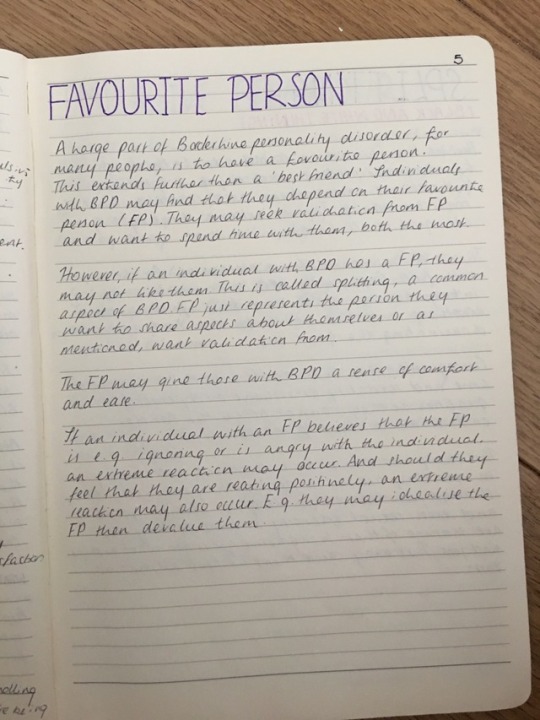 5
FAVOURITE PERSON
A large part of Borderline personality disorder, for
many people, is to have a favourite person.
This extends further than a 'best friend'. Individuals
with BPD may find that they depend on their favourite
person (FP). They may seek validation from FP
and want to spend time with them, both the most.
However, if an individual with BPD has a FP, they
may not like them. This is called splitting, a common
aspect of BPD. FP just represents the person they
want to share aspects about themselves or as
mentioned, want validation from.
The FP may give those with BPD a sense of comfort
and ease.
If an individual with an FP believes that the FP
is e.g ignoring or is angry with the individual.
an extreme reaction may occur. And should they
feel that they are reating positively, an extreme
reaction may also occur. E.g they may idealise the
FP then devalue them.